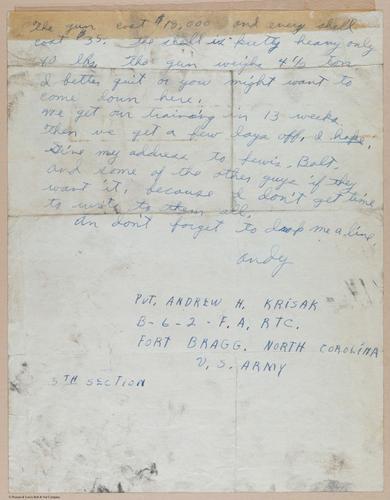 The gun cost $19,000 and every shell
cost $35. The shell is pretty heavy only
40 lbs. The gun weighs 4½ ton
I better quit or you might want to
come down here.
We get our training in 13 weeks
then we get a few days off, I hope.
Give my address to Lewis, Balt.
and some of the other guys if they
want it, because I don't get time
to write to them all.
An don't forget to drop me a line
Andy
PVT. ANDREW H. KRISAK
B-6-2-F.A. RTC.
FORT BRAGG. NORTH COROLINA
U.S. ARMY
5TH SECTION